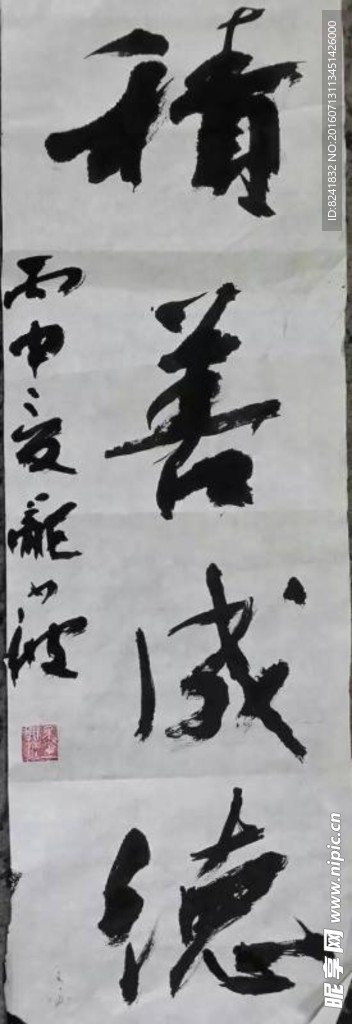 積善成德
丙申夏
ID:8241832 NO:20160713113451426000
昵享网 www.nipic.cn